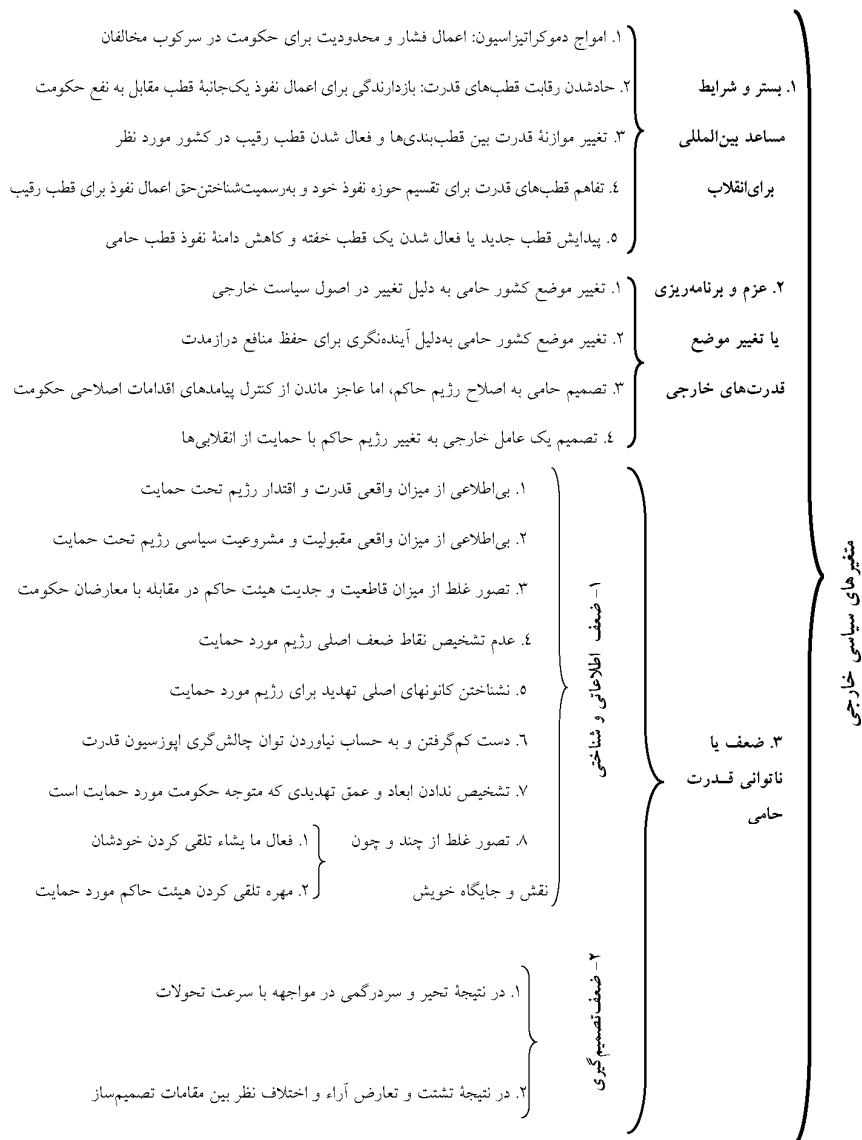 متغیرهای سیاسی خارجی
۱. بستر و شرایط
مساعد بین‌المللی
برای‌انقلاب
۱. امواج دموکراتیزاسیون: اعمال فشار و محدودیت برای حکومت در سرکوب مخالفان
۲. حادشدن رقابت قطب‌های قدرت: بازدارندگی برای اعمال نفوذ یک‌جانبۀ قطب مقابل به نفع حکومت
۳. تغییر موازنۀ قدرت بین قطب‌بندی‌ها و فعال شدن قطب رقیب در کشور مورد نظر
٤. تفاهم قطب‌های قدرت برای تقسیم حوزه نفوذ خود و به‌رسمیت‌شناختن‌حق اعمال نفوذ برای قطب رقیب
٥. پیدایش قطب جدید یا فعال شدن یک قطب خفته و کاهش دامنۀ نفوذ قطب حامی
۲. عزم و برنامه‌ریزی
یا تغییر موضع
قدرت‌های خارجی
۱. تغییر موضع کشور حامی به دلیل تغییر در اصول سیاست خارجی
۲. تغییر موضع کشور حامی به‌دلیل آینده‌نگری برای حفظ منافع درازمدت
۳. تصمیم حامی به اصلاح رژیم حاکم، اما عاجز ماندن از کنترل پیامدهای اقدامات اصلاحی حکومت
٤. تصمیم یک عامل خارجی به تغییر رژیم حاکم با حمایت از انقلابی‌ها
۳. ضعف یا
ناتوانی قــدرت
حامی
۱- ضعف اطلاعاتی و شناختی
۱. بی‌اطلاعی از میزان واقعی قدرت و اقتدار رژیم تحت حمایت
۲. بی‌اطلاعی از میزان واقعی مقبولیت و مشروعیت سیاسی رژیم تحت حمایت
۳. تصور غلط از میزان قاطعیت و جدیت هیئت حاکم در مقابله با معارضان حکومت
٤. عدم تشخیص نقاط ضعف اصلی رژیم مورد حمایت
٥. نشناختن کانونهای اصلی تهدید برای رژیم مورد حمایت
٦. دست کم‌گرفتن و به حساب نیاوردن توان چالش‌گری اپوزسیون قدرت
۷. تشخیص ندادن ابعاد و عمق تهدیدی که متوجه حکومت مورد حمایت است
۸. تصور غلط از چند و چون
نقش و جایگاه خویش
۱. فعال ما یشاء تلقی کردن خودشان
۲. مهره تلقی کردن هیئت حاکم مورد حمایت
۲- ضعف‌تصمیم‌گیری
۱. در نتیجۀ تحیر و سردرگمی در مواجهه با سرعت تحولات
۲. در نتیجۀ تشتت و تعارض آراء و اختلاف نظر بین مقامات تصمیم‌ساز